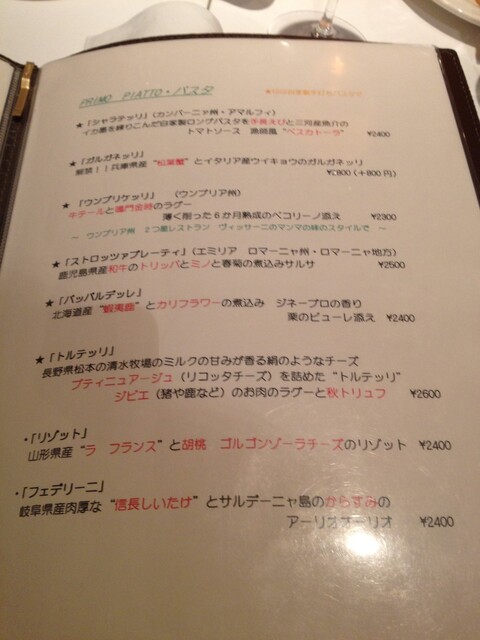 PRIMO PIATTO・パスタ
★「シャラテッリ」(カンパーニャ州・アマルフィ)
イカ墨を練りこんだ自家製ロングパスタを手長えびと三河産魚介の
トマトソース 漁師風 "ペスカトーラ" ¥2400
★「ガルガネッリ」
解禁!!兵庫県産 "松葉蟹" とイタリア産ウイキョウのガルガネッリ
(+800円)
★「ウンブリケッリ」 (ウンブリア州)
牛テールと鳴門金時のラグー
薄く削った6か月熟成のペコリーノ添え ¥2300
~ ウンブリア州 2つ星レストラン ヴィッサーニのマンマの味のスタイルで ~
★「ストロッツァプレーティ」(エミリア ロマーニャ州・ロマーニャ地方)
鹿児島県産和牛のトリッパとミノと春菊の煮込みサルサ ¥2500
★「パッパルデッレ」
北海道産 "蝦夷鹿" とカリフラワーの煮込み ジネープロの香り
栗のピューレ添え ¥2400
★「トルテッリ」
長野県松本の清水牧場のミルクの甘みが香る絹のようなチーズ
プティニュアージュ(リコッタチーズ)を詰めた "トルテッリ"
ジビエ(猪や鹿など)のお肉のラグーと秋トリュフ ¥2600
・「リゾット」
山形県産 "ラ フランス" と胡桃 ゴルゴンゾーラチーズのリゾット ¥2400
・「フェデリーニ」
岐阜県産肉厚な "信長しいたけ" とサルデーニャ島のからすみの
アーリオオーリオ ¥2400